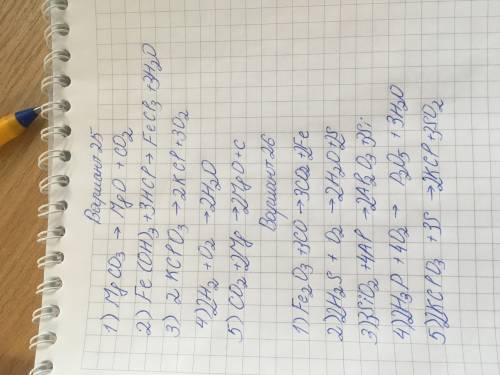 Вариант 25
1) MgCO3 → MgO + CO2
2) Fe(OH)3 + 3HCl → FeCl3 + 3H2O
3) 2KClO3 → 2KCl + 3O2
4) 2H2 + O2 → 2H2O
5) CO2 + 2Mg → 2MgO + C
Вариант 26
1) Fe2O3 + 3CO → 3CO2 + 2Fe
2) 2H2S + O2 → 2H2O + 2S
3) 3SiO2 + 4Al → 2Al2O3 + 3Si
4) 2H3P + 4O2 → P2O5 + 3H2O
5) 2KClO3 + 3S → 2KCl + 3SO2